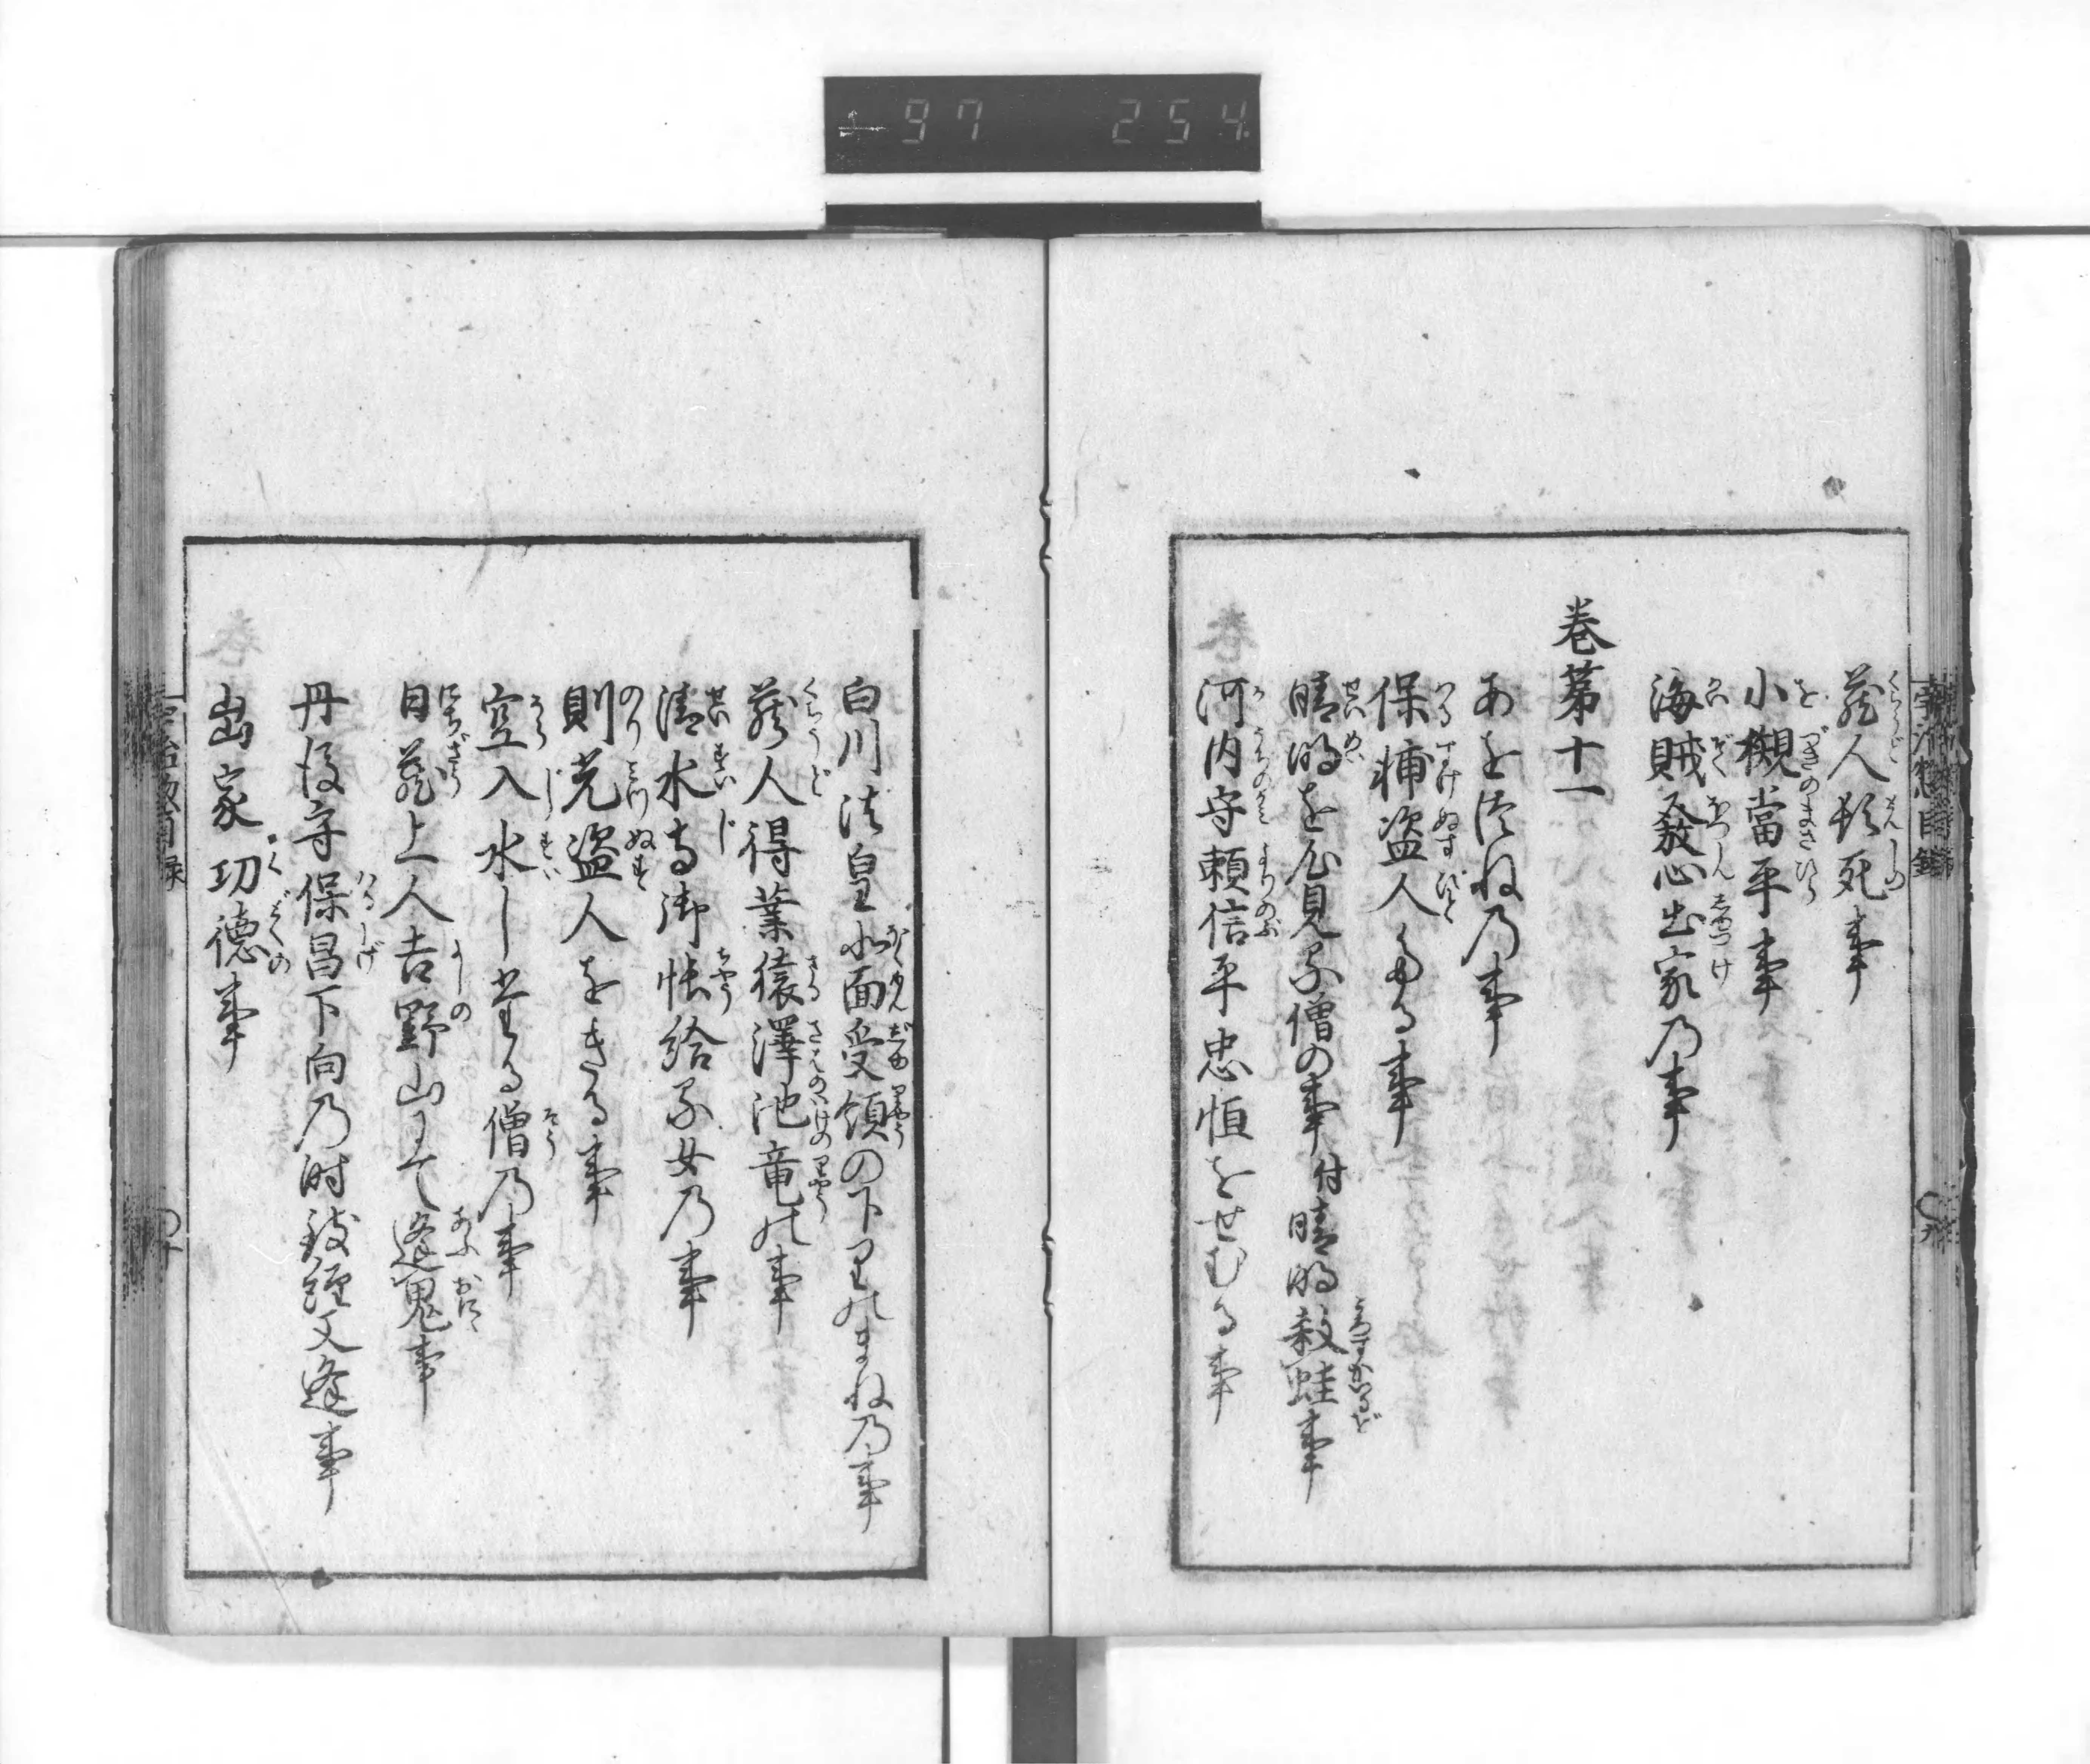 97 254
蔵人頓死事
小槻當平事
海賊發心出家乃事
巻第十一
あをつね乃事
保輔盗人たる事
晴明を心見る僧の事付晴明殺蛙事
河内守頼信平忠恒をせむる事
白川法皇北面受領の下りのまね乃事
蔵人得業猿澤池竜の事
清水寺御帳給る女乃事
則光盗人をきる事
空入水したる僧乃事
日蔵上人吉野山にて逢鬼事
丹後守保昌下向乃時致経父逢事
出家功徳事